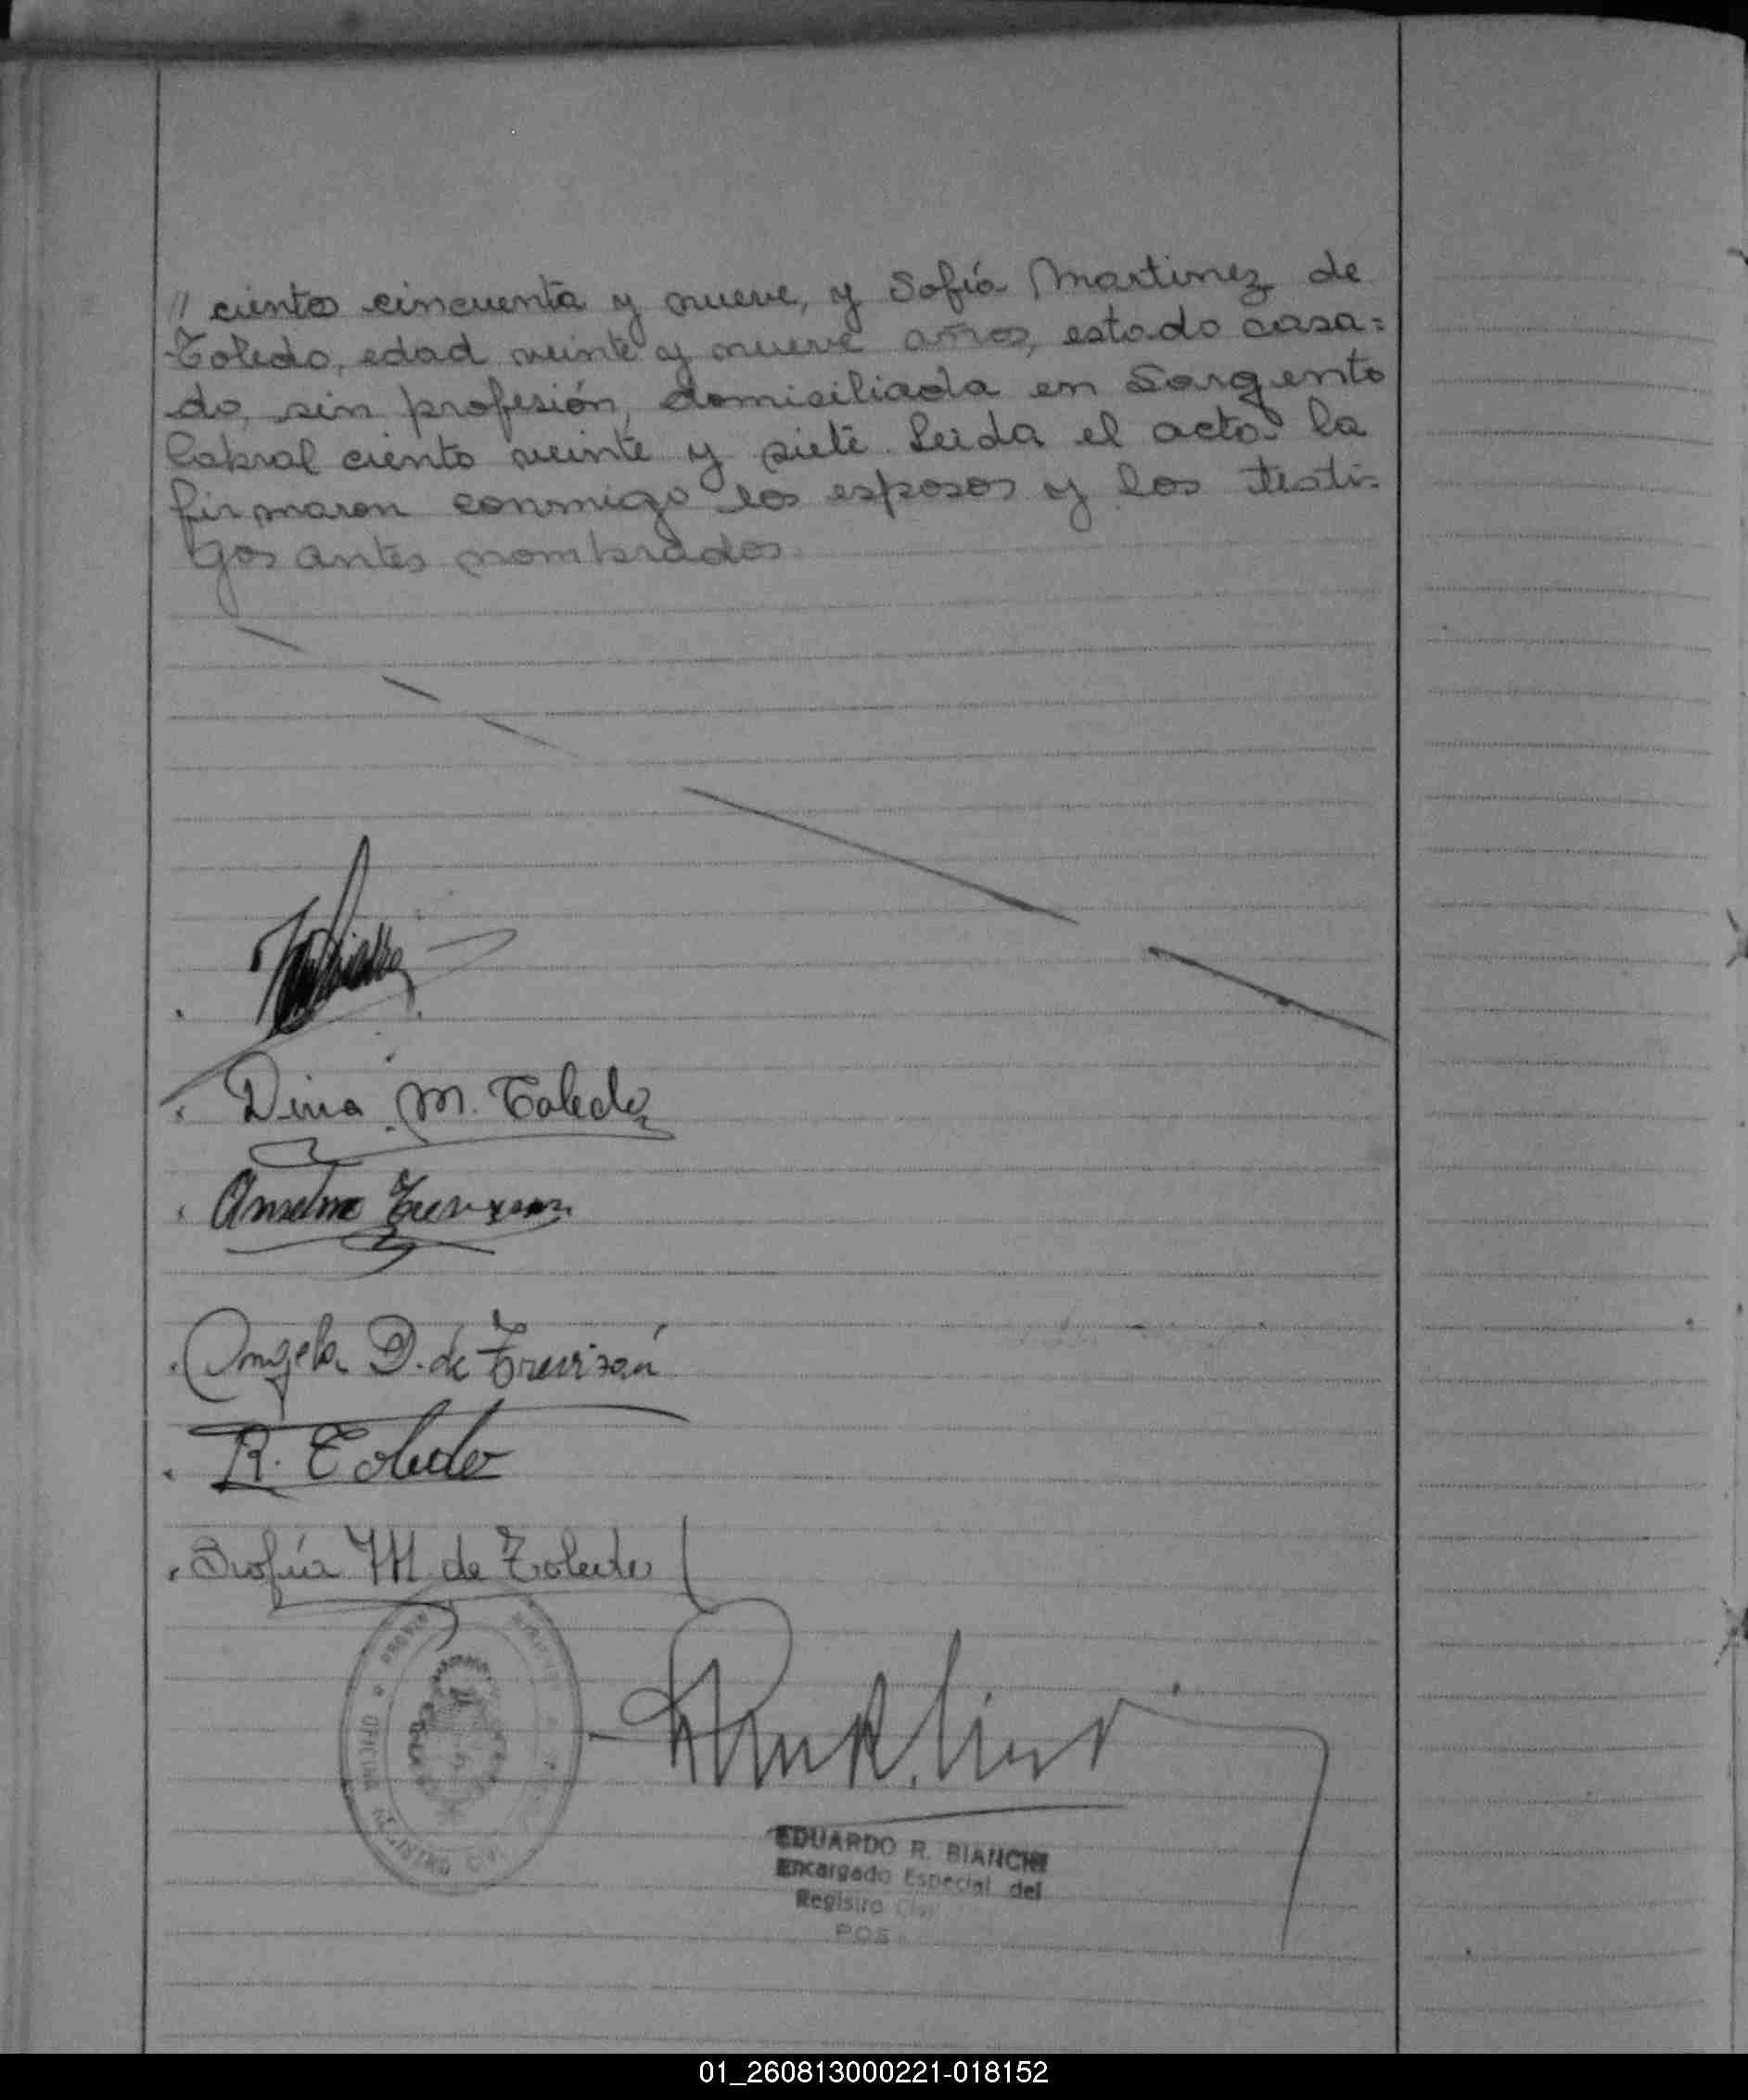 // ciento cincuenta y nueve, y Sofía Martinez de
Toledo, edad veinte y nueve años, estado casa=
do, sin profesión, domiciliada en Sargento
Cabral ciento veinte y siete. Leida el acta la
firmaron conmigo los esposos y los testi=
gos antes nombrados
Dina M. Toledo
Anselmo
Angela D. de Trevizán
R. Toledo
Sofía M. de Toledo
OFICINA REGISTRO CIVIL
EDUARDO R. BIANCHI
Encargado Especial del
Registro Civil
POS
01_260813000221-018152